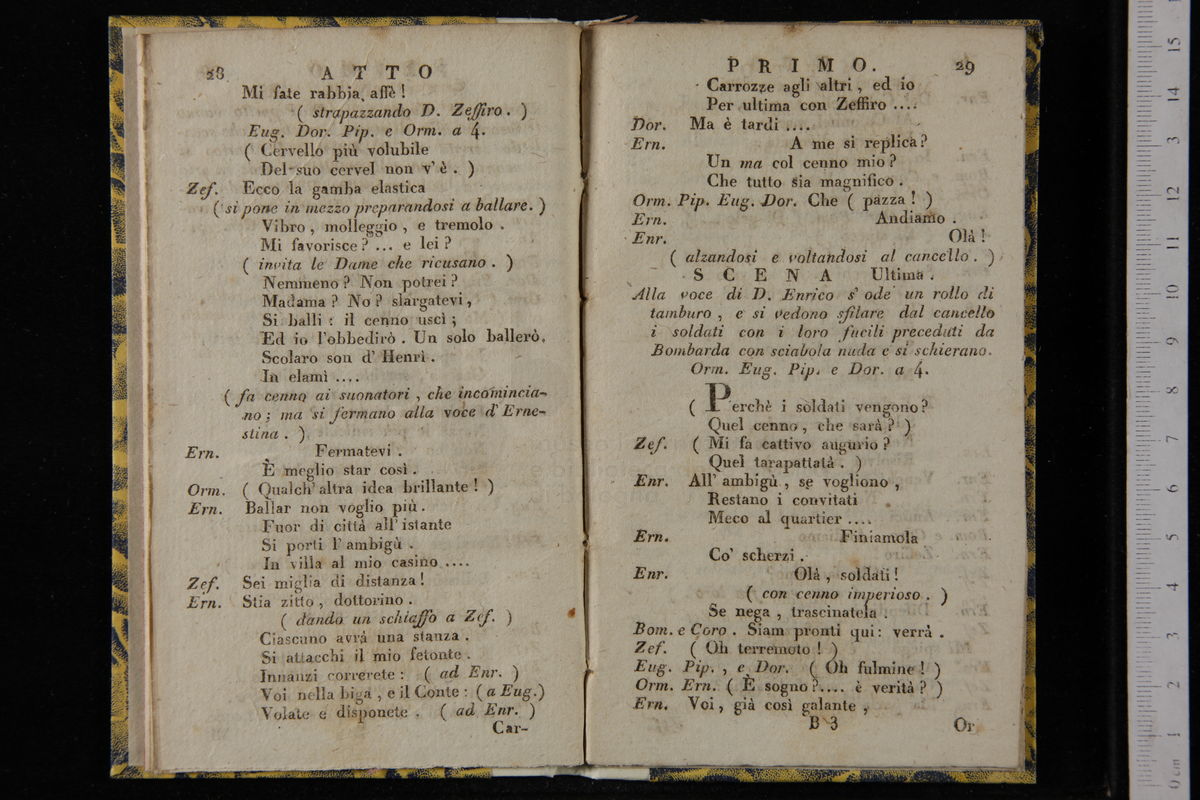 28 ATTO
Mi fate rabbia, affè !
( strapazzando D. Zeffiro . )
Eug. Dor. Pip. e Orm. a 4.
( Cervello più volubile
Del suo cervel non v' è . )
Zef. Ecco la gamba elastica
( si pone in mezzo preparandosi a ballare. )
Vibro , molleggio , e tremolo .
Mi favorisce ? ... e lei ?
( invita le Dame che ricusano . )
Nemmeno ? Non potrei ?
Madama ? No ? slargatevi ,
Si balli : il cenno uscì ;
Ed io l'obbedirò . Un solo ballerò,
Scolaro son d' Henrì .
In elamì ....
( fa cenno ai suonatori , che incomincia-
no ; ma si fermano alla voce d' Erne-
stina . )
Ern. Fermatevi .
È meglio star così .
Orm. ( Qualch' altra idea brillante ! )
Ern. Ballar non voglio più .
Fuor di città all' istante
Si porti l' ambigù .
In villa al mio casino ....
Zef. Sei miglia di distanza !
Ern. Stia zitto , dottorino .
( dando un schiaffo a Zef. )
Ciascuno avrà una stanza .
Si attacchi il mio fetonte .
Innanzi correrete : ( ad Enr. )
Voi nella biga , e il Conte : ( a Eug.)
Volate e disponete . ( ad Enr. )
Car-
PRIMO. 29
Carrozze agli altri , ed io
Per ultima con Zeffiro ....
Dor. Ma è tardi ....
Ern. A me si replica ?
Un ma col cenno mio ?
Che tutto sia magnifico .
Orm. Pip. Eug. Dor. Che ( pazza ! )
Ern. Andiamo .
Enr. Olà !
( alzandosi e voltandosi al cancello . )
SCENA Ultima .
Alla voce di D. Enrico s' ode un rollo di
tamburo , e si vedono sfilare dal cancello
i soldati con i loro fucili preceduti da
Bombarda con sciabola nuda e si schierano.
Orm. Eug. Pip. e Dor. a 4.
( Perchè i soldati vengono ?
Quel cenno , che sarà ? )
Zef. ( Mi fa cattivo augurio ?
Quel tarapattatà . )
Enr. All' ambigù , se vogliono ,
Restano i convitati
Meco al quartier ....
Ern. Finiamola
Co' scherzi .
Enr. Olà , soldati !
( con cenno imperioso . )
Se nega , trascinatela .
Bom. e Coro . Siam pronti qui : verrà .
Zef. ( Oh terremoto ! )
Eug. Pip. , e Dor. ( Oh fulmine ! )
Orm. Ern. ( È sogno ?.... è verità ? )
Ern. Voi , già così galante ,
B 3 Or
15
14
13
12
11
10
9
8
7
6
5
4
3
2
1
0 cm